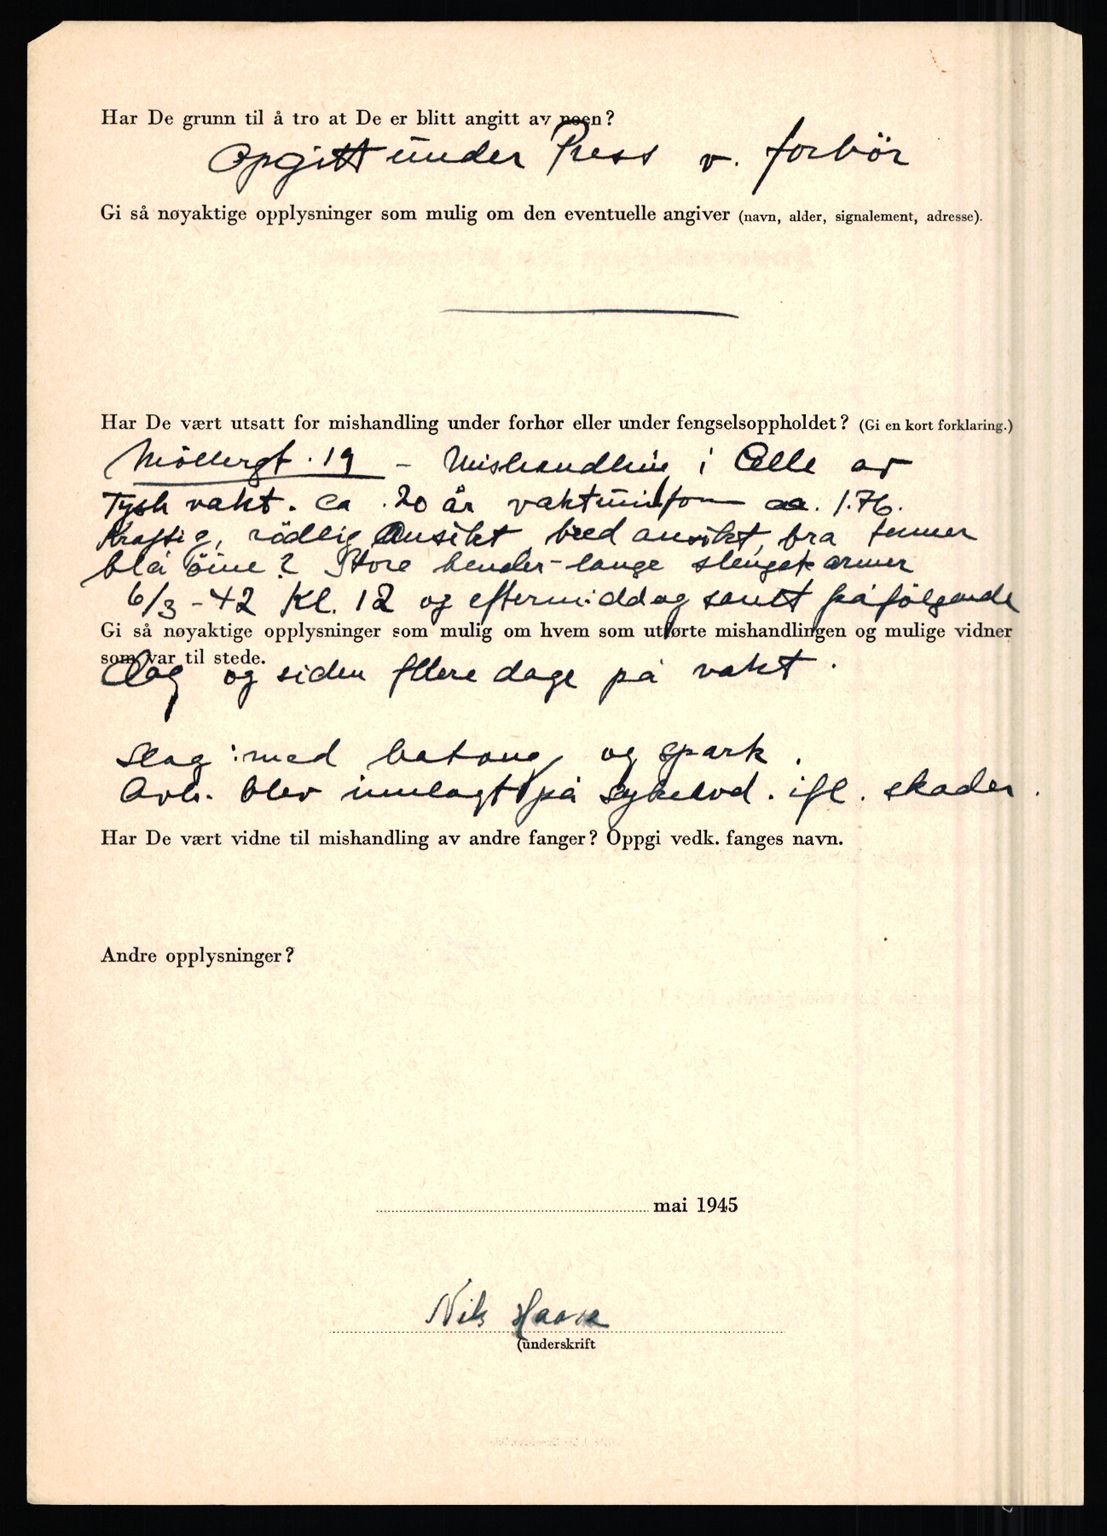 Har De grunn til å tro at De er blitt angitt av noen?
Opgitt under Press v. forhör
Gi så nøyaktige opplysninger som mulig om den eventuelle angiver (navn, alder, signalement, adresse).
Har De vært utsatt for mishandling under forhør eller under fengselsoppholdet? (Gi en kort forklaring.)
Möllergt. 19 – Mishandling i Celle av
Tysk vakt. ca. 20 år vaktuniform ca. 1.76.
Kraftig, rödlig Ansikt bred ansikt, bra tenner
blå öine? Store hender - lange slengete armer
6/3 - 42 Kl. 12 og eftermiddag samt påfölgende
Gi så nøyaktige opplysninger som mulig om hvem som utførte mishandlingen og mulige vidner
som var til stede.
Dag og siden flere dage på vakt.
Slag med batong og spark.
Arb. blev innlagt på Sykeavd. ifl. skader.
Har De vært vidne til mishandling av andre fanger? Oppgi vedk. fanges navn.
Andre opplysninger?
mai 1945
Nils Haave
(underskrift